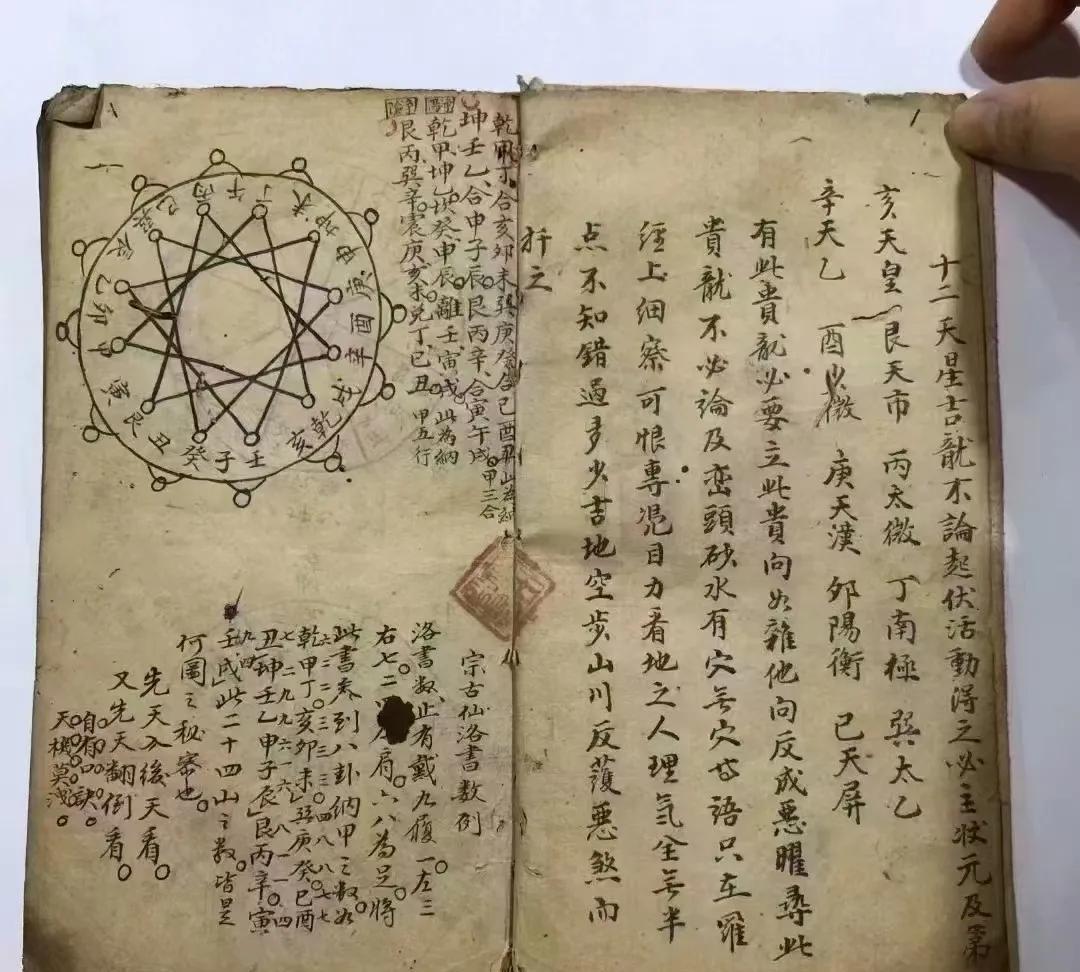 十二天星吉龍不論起伏活動得之必主狀元及第
亥天皇 艮天市 丙太微 丁南極 巽太乙
辛天乙 酉少微 庚天漢 卯陽衡 巳天屏
有此貴龍必要立此貴向如雜他向反成惡曜尋此
貴龍不必論及巒頭砂水有穴無穴哉語只在羅
經上細察可恨專憑目力看地之人理氣全無半
点不知錯過多少吉地空步山川反護惡煞而
扦之
乾甲丁合亥卯未巽庚癸合巳酉丑山為納
坤壬乙合申子辰艮丙辛合寅午戌甲三合
乾甲坤乙坎癸申辰離壬寅戌此為納
艮丙巽辛震庚亥未兌丁巳丑甲五行
丙午丁未坤申庚酉辛戌乾亥壬子癸丑艮寅甲卯乙辰巽巳
宗古仙洛書數例
洛書数止有戴九履一左三
右七二肩六八為足將
此書表到八卦纳甲之数如
乾甲丁亥卯未巽庚癸巳酉
六三二三三三四八八七七
丑坤壬乙申子辰艮丙辛寅
七二九九六一六八一一四
壬戌此二十四山之数皆是
九四
何圖之秘察也
先天入後天看
又先天翻倒看
自有口訣
天機莫洩